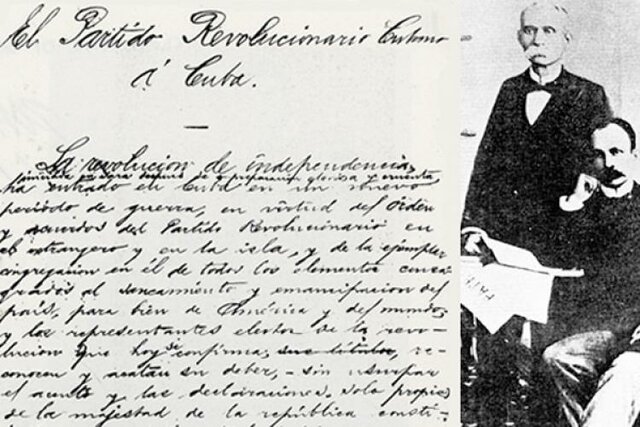 El Partido Revolucionario Cubano
á Cuba.
La revolución de independencia,
iniciada en Yara después de preparación gloriosa y cruenta
ha entrado en Cuba en un nuevo
periodo de guerra, en virtud del orden
y acuerdos del Partido Revolucionario en
el extrangero y en la isla, y de la ejemplar
congregación en él de todos los elementos consa-
grados al saneamiento y emancipacion del
país, para bien de América y del mundo;
y los representantes electos de la revo-
lucion que hoy se confirma, sus títulos, re-
conocen y acatan su deber, - sin usurpar
el acento y las declaraciones solo propias
de la majestad de la república consti-
PATRIA